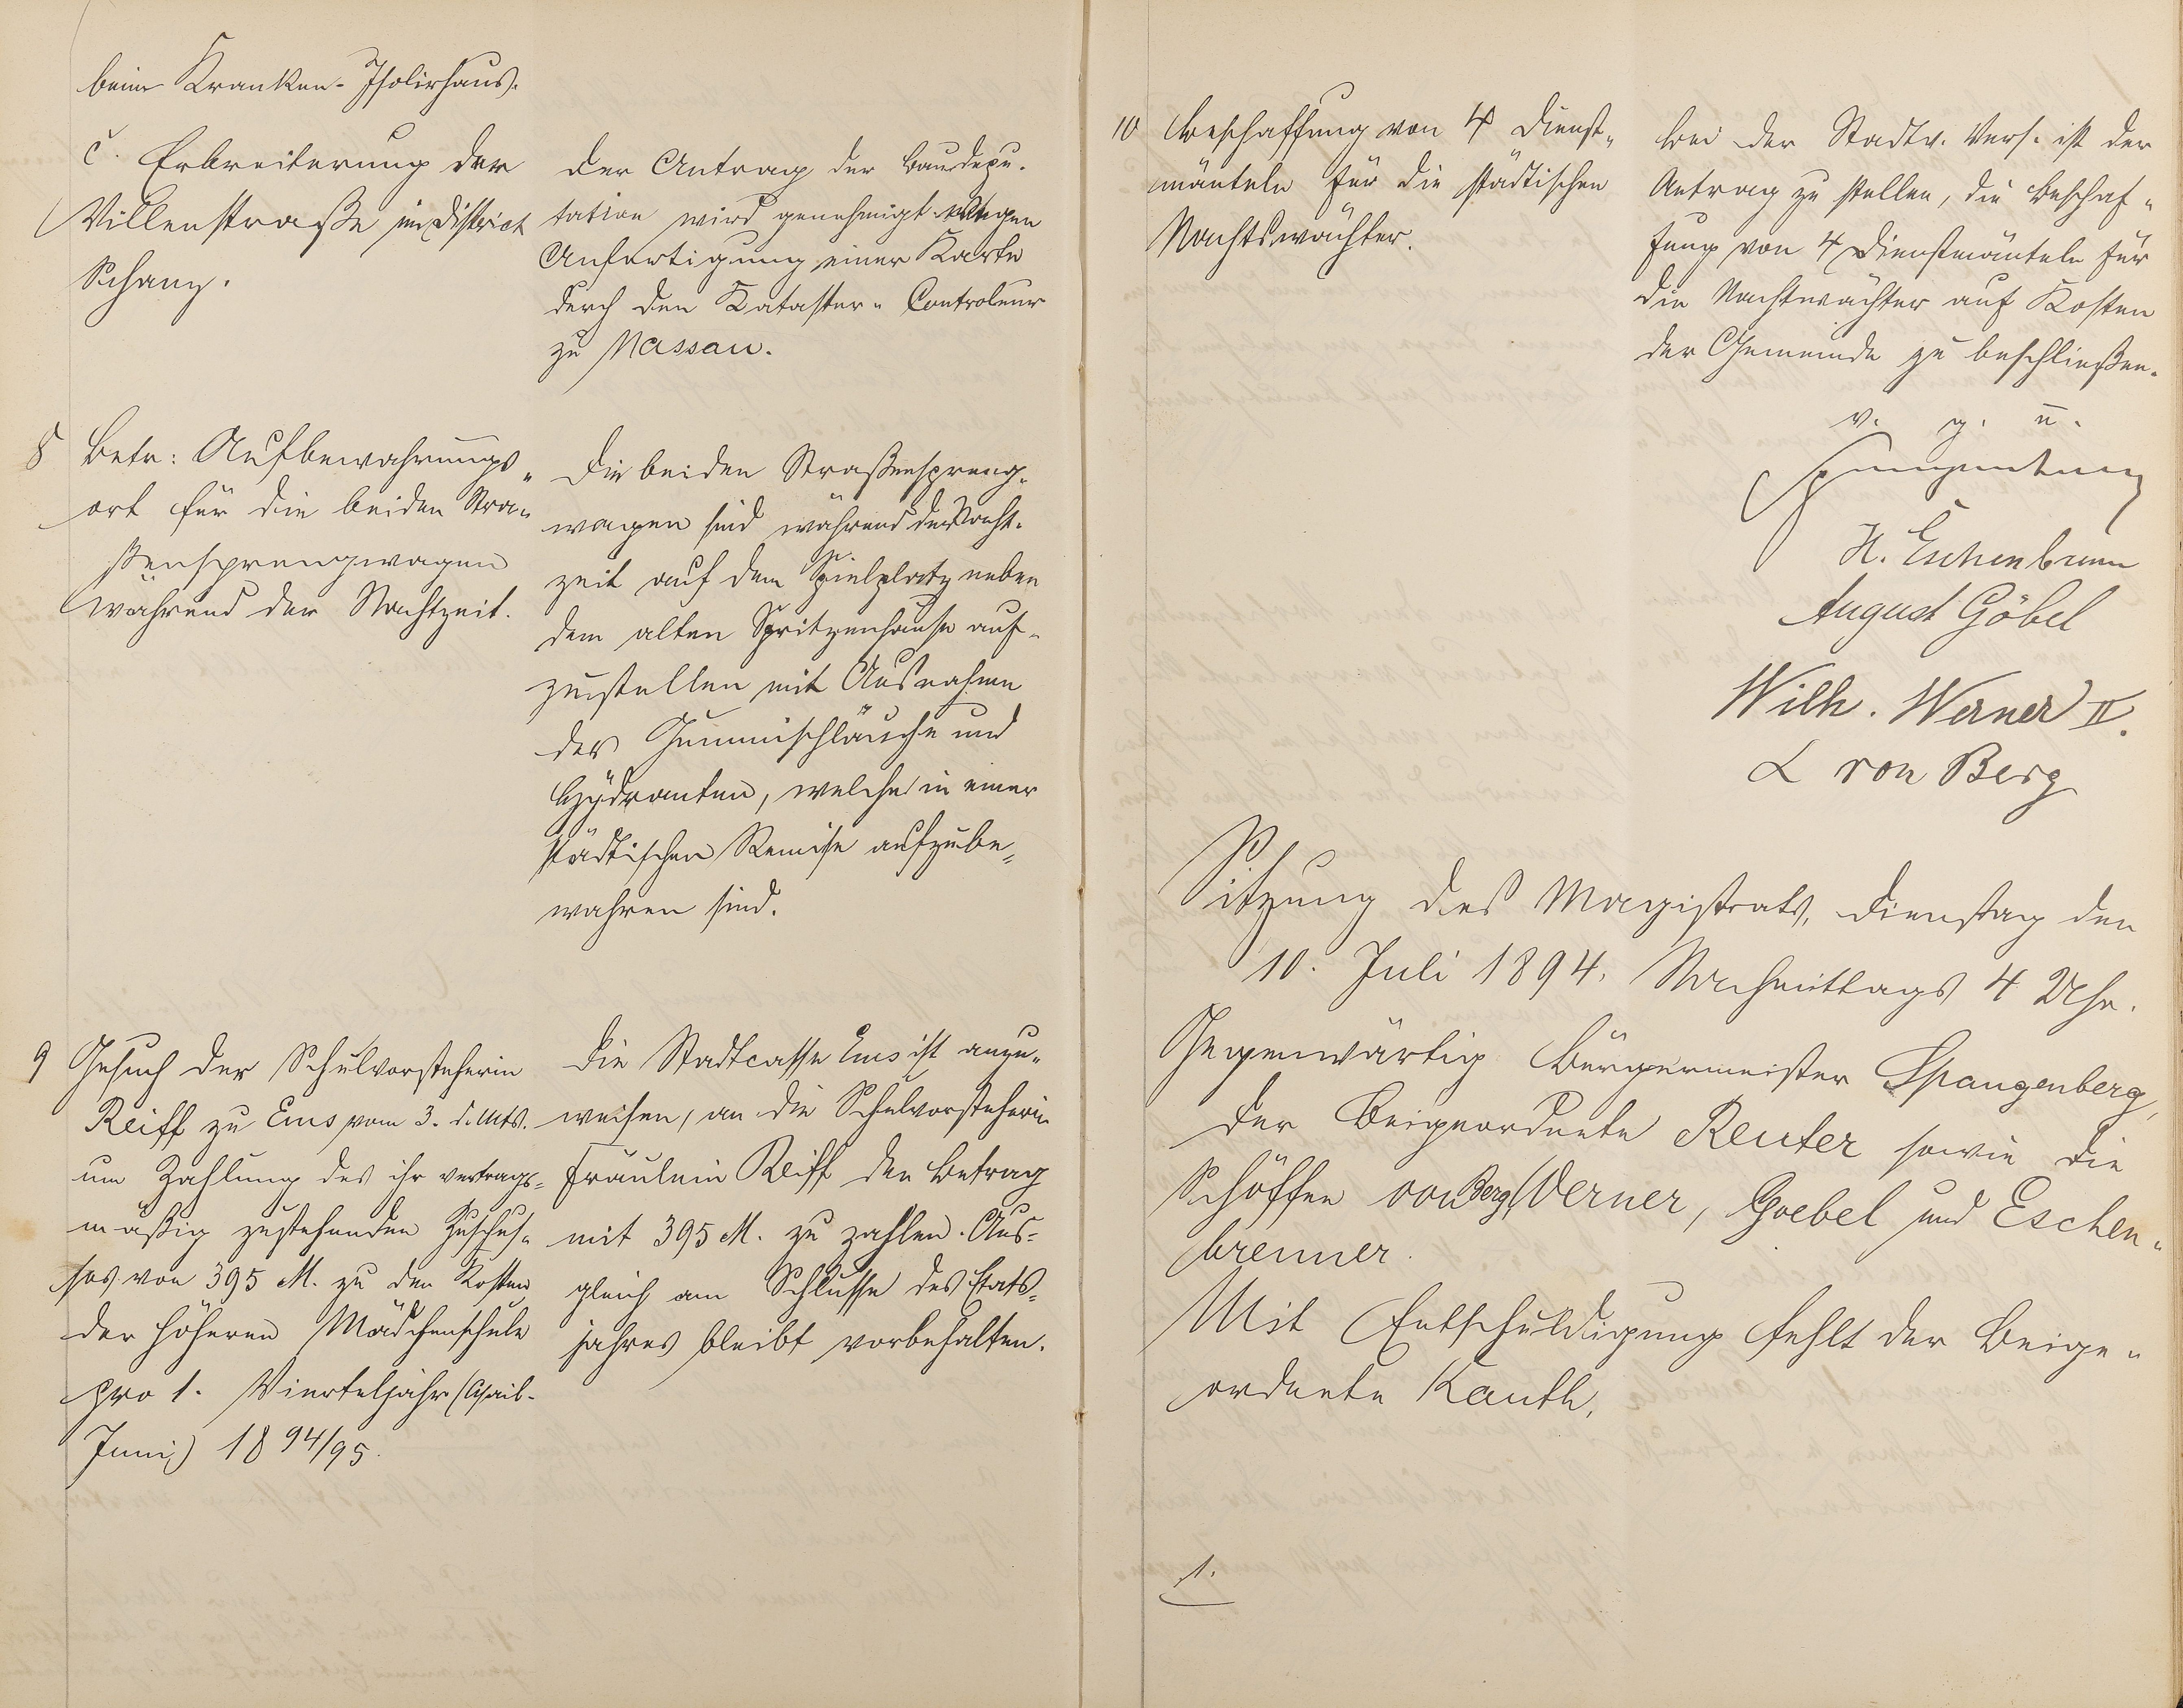 beim Kranken-Isolirhaus.
c. Erbreiterung der
Villenstraße im District
Schanz.
Der Antrag der Baudepu-
tation wird genehmigt wegen
Anfertigung einer Karte
durch den Kataster-Controleur
zu Nassau.
8 Betr: Aufbewahrungs-
ort für die beiden Stra-
ßensprengwagen
während der Nachtzeit.
Die beiden Straßenspreng-
wagen sind während der Nacht-
zeit auf dem Spielplatz neben
dem alten Spritzenhause auf-
zustellen mit Ausnahme
der Gummischläuche und
Hydranten, welche in einer
städtischen Remise aufzube-
wahren sind.
9 Gesuch der Schulvorsteherin
Reiff zu Ems vom 3. d. Mts.
um Zahlung des ihr vertrags-
mäßig zustehenden Zuschus-
ses von 395 M. zu den Kosten
der höheren Mädchenschule
pro 1. Vierteljahr (April-
Juni) 1894/95.
Die Stadtcasse Ems ist anzu-
weisen, an die Schulvorsteherin
Fräulein Reiff den Betrag
mit 395 M. zu zahlen. Aus-
gleich am Schlusse des Etats-
jahres bleibt vorbehalten.
10 Beschaffung von 4 Dienst-
mänteln für die städtischen
Nachtswächter.
Bei der Stadtv. Vers. ist der
Antrag zu stellen, die Beschaf-
fung von 4 Dienstmänteln für
die Nachtwächter auf Kosten
der Gemeinde zu beschließen.
v. g. u.
Spangenberg
H. Eschenbrenner
August Göbel
Wilh. Werner II.
L von Berg
Sitzung des Magistrats, Dienstag den
10. Juli 1894, Nachmittags 4 Uhr.
Gegenwärtig Bürgermeister Spangenberg,
der Beigeordnete Reuter sowie die
Schöffen von Berg, Werner, Goebel und Eschen-
brenner.
Mit Entschuldigung fehlt der Beige-
ordnete Kauth.
1.